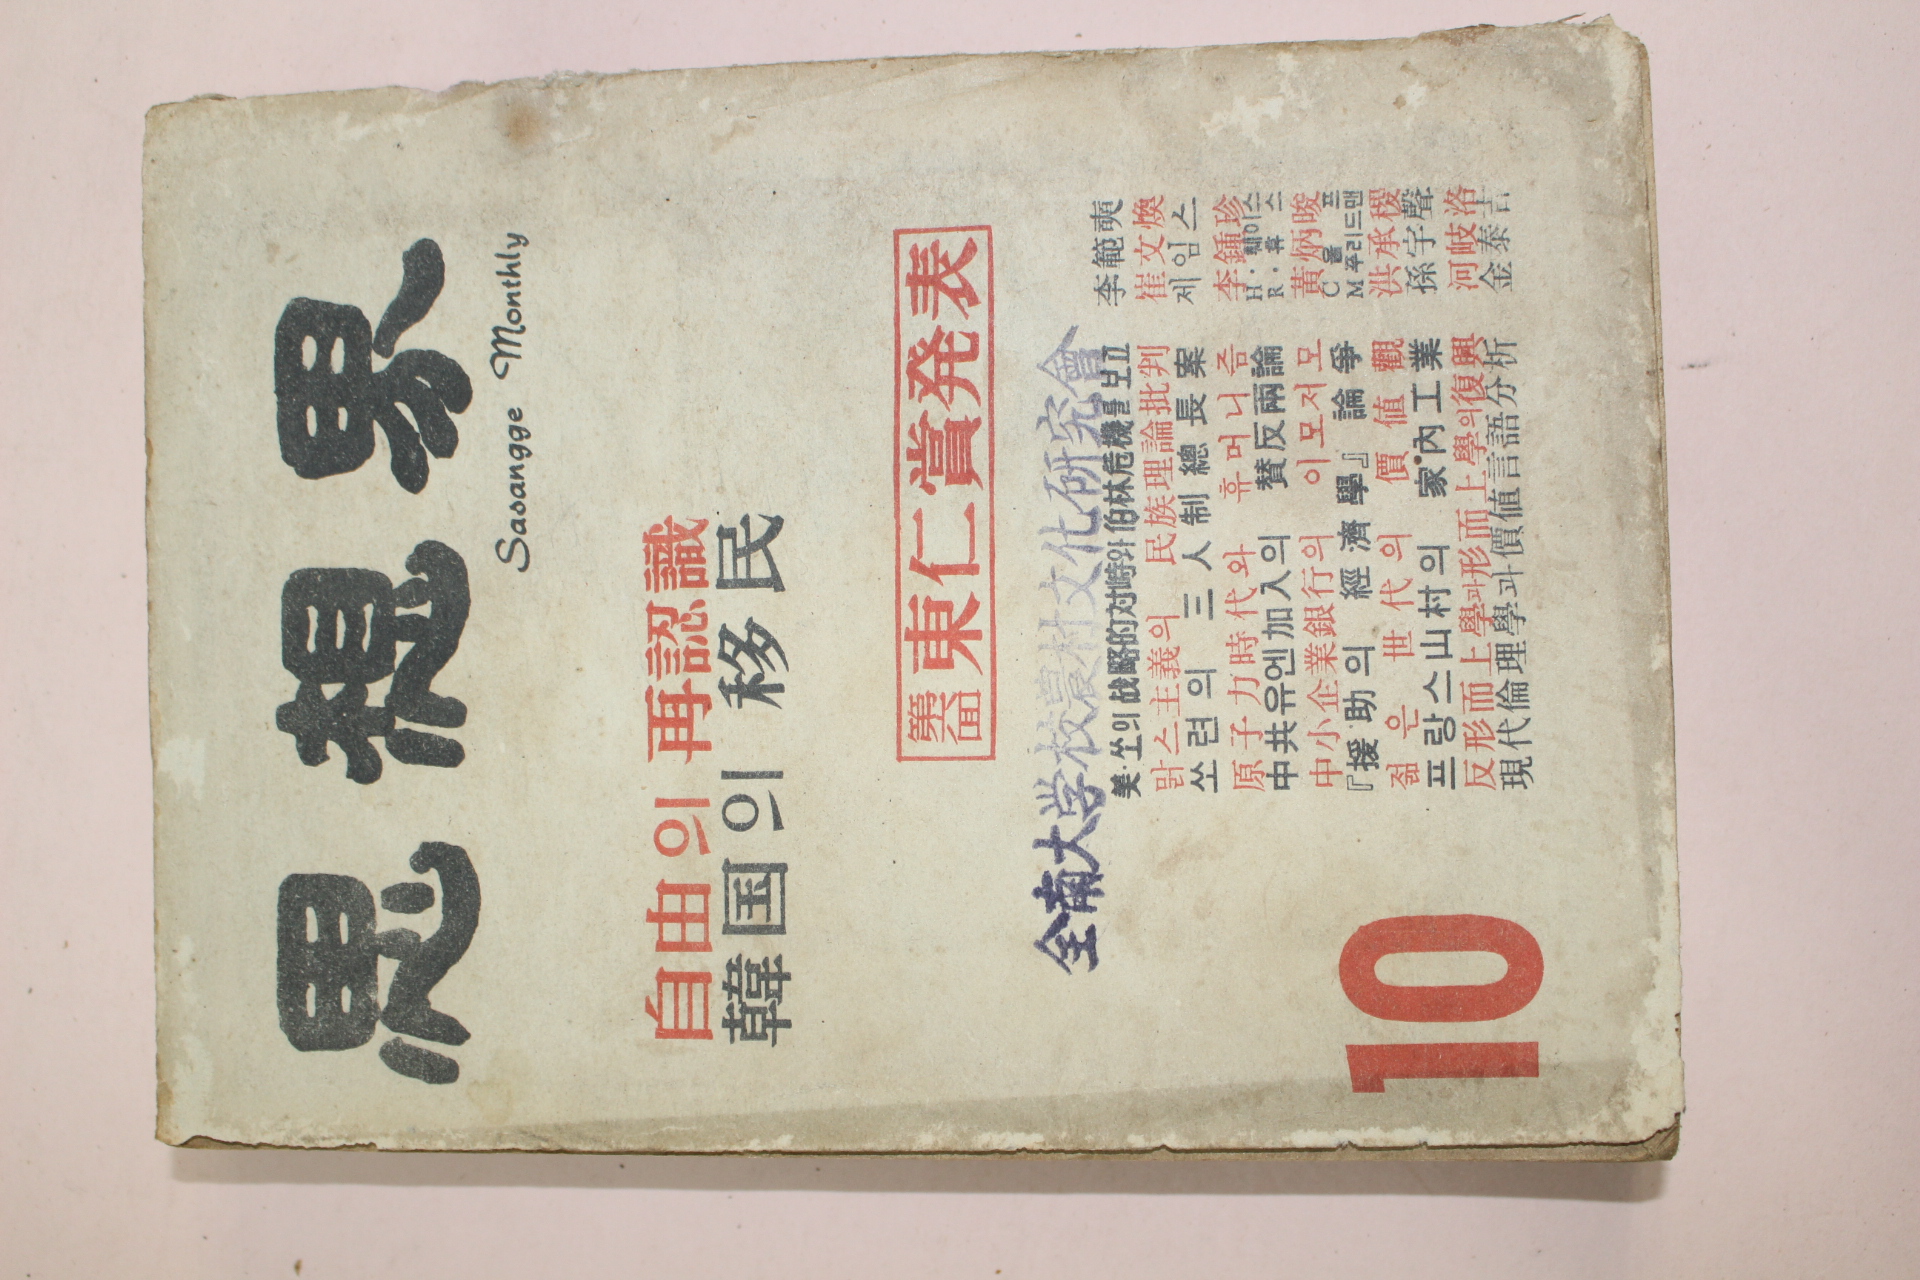 思想界
Sasangge Monthly
自由의 再認識
韓国의 移民
第六回 東仁賞発表
全南大学校農村文化研究會
美·쏘의 战略的対峙와 伯林危機를 보고 李範奭
맑스主義의 民族理論批判 崔文煥
쏘련의 三人制總長案 제임스
原子力時代와 휴머니즘 李鍾珍
中共유엔加入의 贊反兩論 H·췌이스 R·휴스
中小企業銀行의 이모저모 黃炳晙
『援助의 經濟學』論爭 C 울프 M 푸리드맨
젊은 世代의 價値觀 洪承稷
프랑스山村의 家內工業 孫宇聲
反形而上學과 形而上學의 復興 河岐洛
現代倫理學과 價値言語分析 金泰吉
10